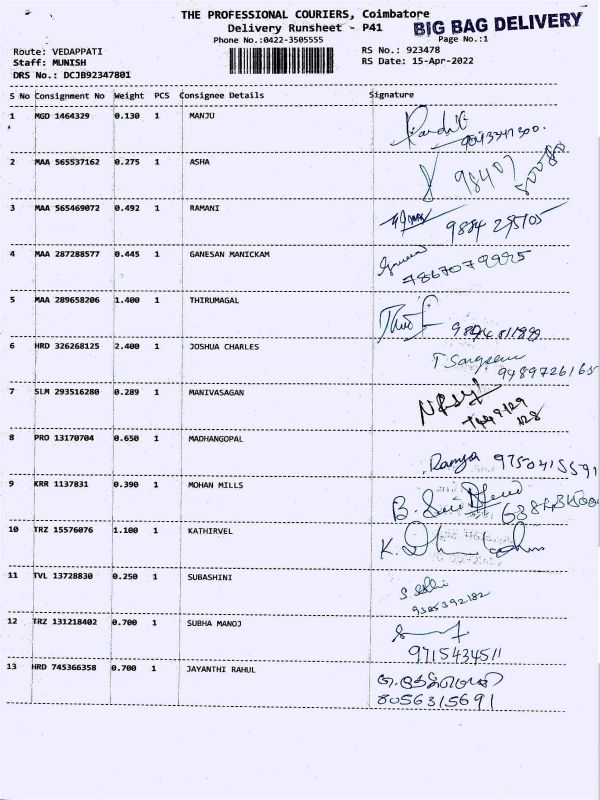 THE PROFESSIONAL COURIERS, Coimbatore
BIG BAG DELIVERY
Delivery Runsheet - P41
Phone No.:0422-3505555
Page No.:1
Route: VEDAPPATI
RS No.: 923478
Staff: MUNISH
RS Date: 15-Apr-2022
DRS No.: DCJB92347801
S No Consignment No Weight PCS Consignee Details Signature
1 MGD 1464329 0.130 1 MANJU
2 MAA 565537162 0.275 1 ASHA
3 MAA 565469072 0.492 1 RAMANI
9884 295105
4 MAA 287288577 0.445 1 GANESAN MANICKAM
7867079995
5 MAA 289658206 1.400 1 THIRUMAGAL
6 HRD 326268125 2.400 1 JOSHUA CHARLES
9489726165
7 SLM 293516280 0.289 1 MANIVASAGAN
8 PRO 13170704 0.650 1 MADHANGOPAL
Ramya 9750415591
9 KRR 1137831 0.390 1 MOHAN MILLS
10 TRZ 15576076 1.100 1 KATHIRVEL
11 TVL 13728830 0.250 1 SUBASHINI
9385392182
12 TRZ 131218402 0.700 1 SUBHA MANOJ
9715434511
13 HRD 745366358 0.700 1 JAYANTHI RAHUL
8056315691